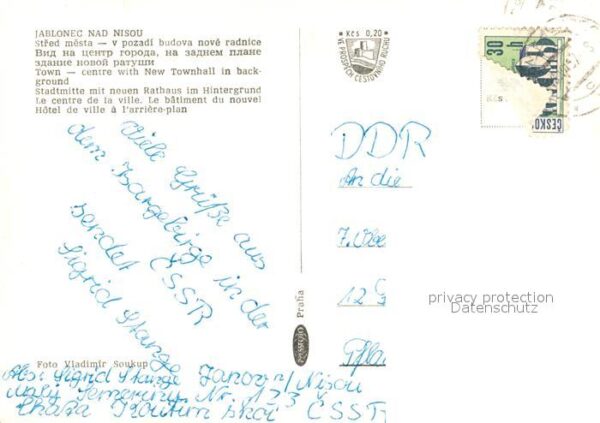 JABLONEC NAD NISOU
Střed města — v pozadí budova nové radnice
Вид на центр города, на заднем плане
здание новой ратуши
Town — centre with New Townhall in back-
ground
Stadtmitte mit neuen Rathaus im Hintergrund
Le centre de la ville. Le bâtiment du nouvel
Hôtel de ville à l'arrière-plan
Kčs 0,20
VE PROSPĚCH CESTOVNÍHO RUCHU
30
h
Kčs
ČESKO
Viele Grüße aus
dem Isargebirge in der
ČSSR
sendet
Sigrid Stange
DDR
An die
7.
12
privacy protection
Datenschutz
Pragfoto
Praha
Foto Vladimír Soukup
Abs: Sigrid Stange Janov n/Nisou
Malý Semerink Nr. 173
Chata ČSSR